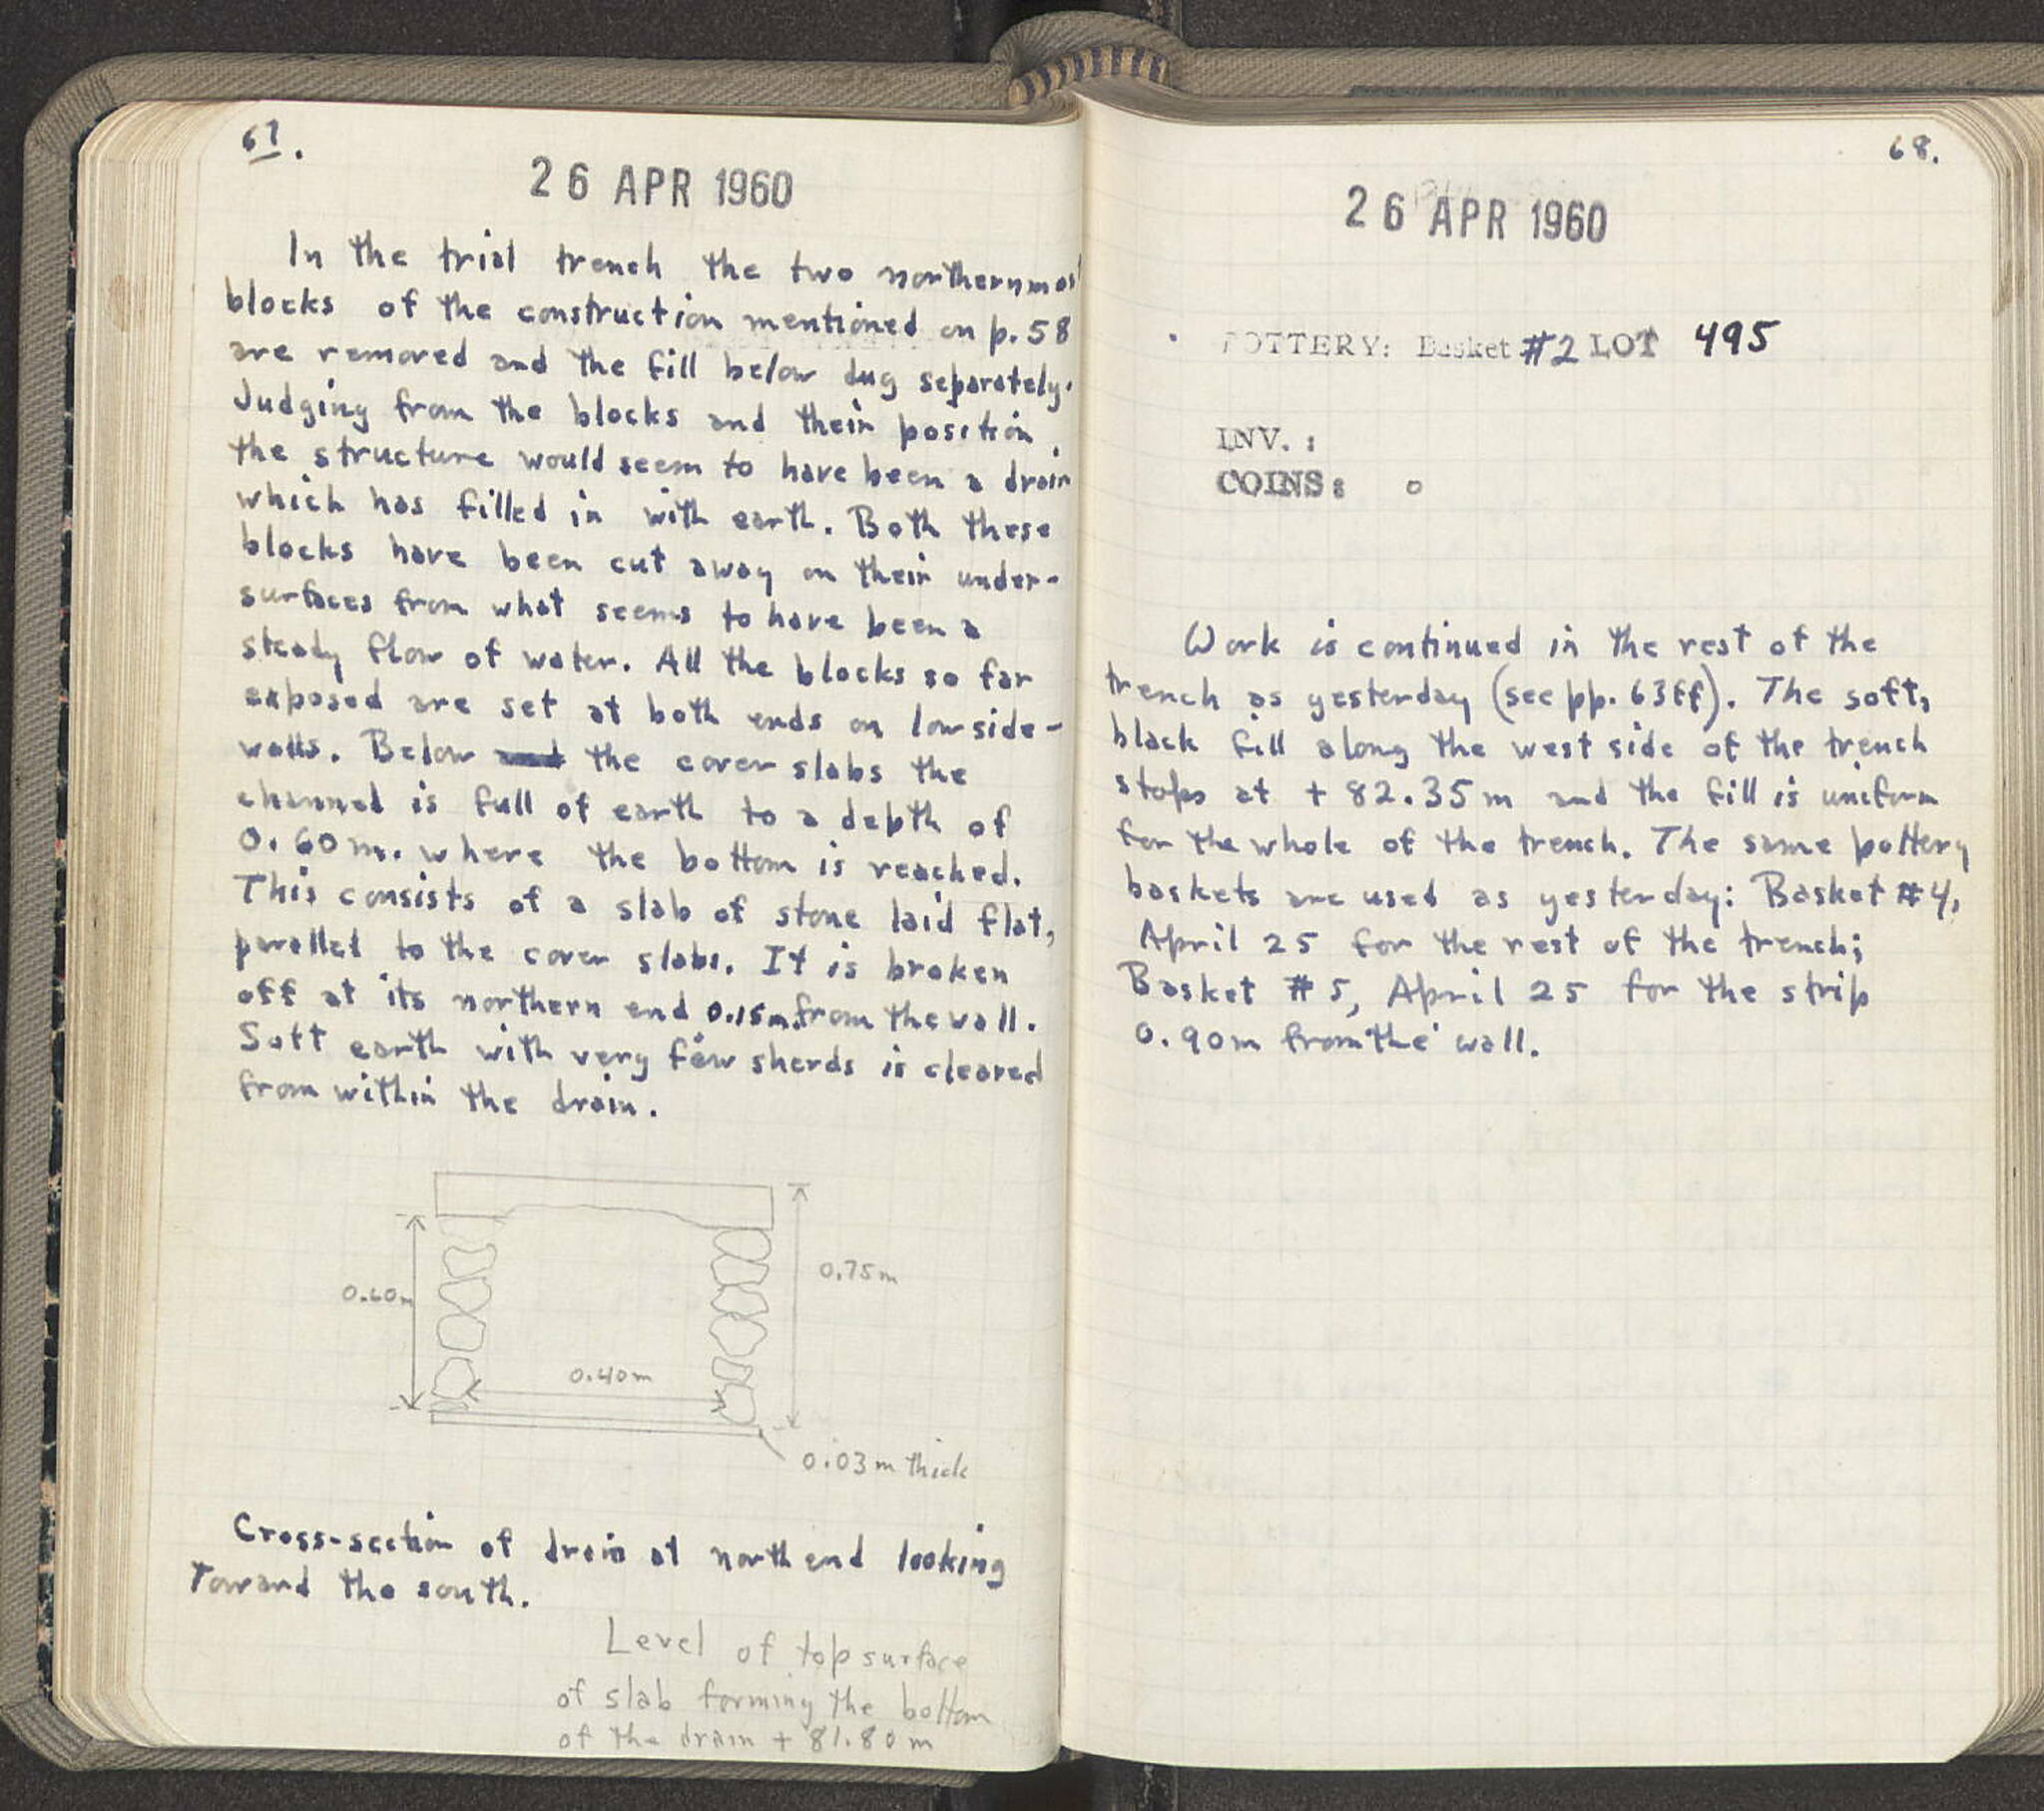 67.
26 APR 1960
In the trial trench the two northernmost
blocks of the construction mentioned on p. 58
are removed and the fill below dug separately.
Judging from the blocks and their position,
the structure would seem to have been a drain
which has filled in with earth. Both these
blocks have been cut away on their under-
surfaces from what seems to have been a
steady flow of water. All the blocks so far
exposed are set at both ends on low side-
walls. Below the cover slabs the
channel is full of earth to a depth of
0.60 m. where the bottom is reached.
This consists of a slab of stone laid flat,
parallel to the cover slabs. It is broken
off at its northern end 0.15m. from the wall.
Soft earth with very few sherds is cleared
from within the drain.
0.60m
0.75m
0.40m
0.03m thick
Cross-section of drain at north end looking
Toward the south.
Level of top surface
of slab forming the bottom
of the drain + 81.80 m
68.
26 APR 1960
POTTERY: Basket #2 LOT 495
INV. :
COINS: 0
Work is continued in the rest of the
trench as yesterday (see pp. 63ff). The soft,
black fill along the west side of the trench
stops at + 82.35m and the fill is uniform
for the whole of the trench. The same pottery
baskets are used as yesterday: Basket #4,
April 25 for the rest of the trench;
Basket #5, April 25 for the strip
0.90m from the wall.